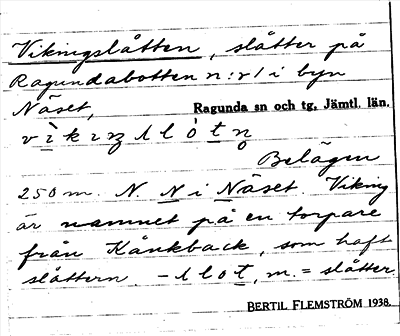 Vikingslåtten, slåtter på
Ragundabotten n:r 1 i byn
Näset,
Ragunda sn och tg, Jämtl. län.
Belägen
250 m. N. N i Näset. Viking
är namnet på en torpare
från Kånkback, som haft
slåttern. - slot, m. = slåtter.
BERTIL FLEMSTRÖM 1938.